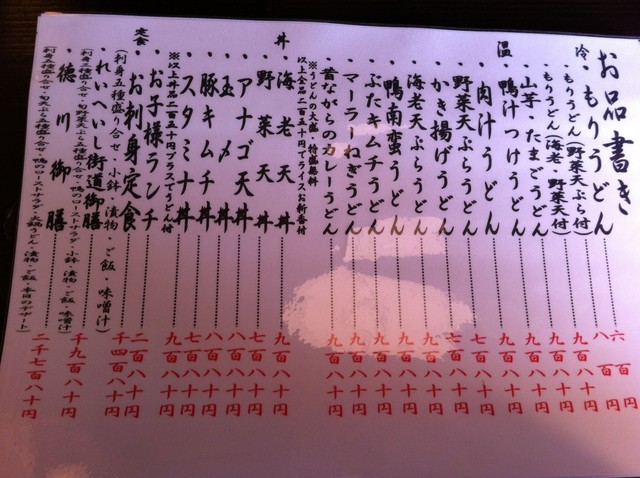 お品書き
冷
もりうどん 六百円
もりうどん(野菜天ぷら付) 八百円
もりうどん(海老・野菜天付) 九百八十円
山芋・たまごうどん 八百八十円
鴨汁つけうどん 九百八十円
温
肉汁うどん 七百八十円
野菜天ぷらうどん
かき揚げうどん
海老天ぷらうどん 九百八十円
鴨南蛮うどん 九百八十円
ぶたキムチうどん 九百八十円
マーラーねぎうどん 九百八十円
昔ながらのカレーうどん 九百八十円
※うどんの大盛・特盛無料
以上全品二百五十円でライスお新香付
丼
海老天丼 九百八十円
野菜天丼 七百八十円
アナゴ天丼 八百八十円
玉〆丼 八百八十円
豚キムチ丼 八百八十円
スタミナ丼 七百八十円
※以上丼品二百五十円プラスでうどん付 九百八十円
定食
お子様ランチ 二百八十円
お刺身定食 千四百八十円
(刺身五種盛り合せ・小鉢・漬物・ご飯・味噌汁)
れいへいし街道御膳 千九百八十円
刺身三種盛り合せ・旬野菜天ぷら五種盛り合せ・鴨のローストサラダ・小鉢・漬物・ご飯・味噌汁
徳川御膳 二千七百八十円
刺身五種盛り合せ・旬天ぷら五種盛り合せ・鴨のローストサラダ・火鍋うどん・漬物・ご飯・本日のデザート